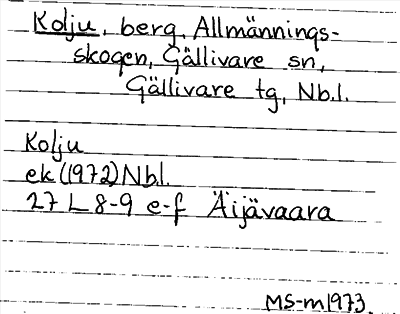 Kolju, berg, Allmännings-
skogen, Gällivare sn,
Gällivare tg, Nb.l.
Kolju
ek (1972) Nb.l.
27 L 8-9 e-f Äijävaara
MS-m1973.